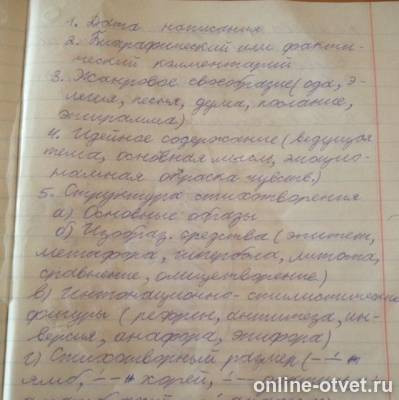 1. Дата написания
2. Биографический или факти-
ческий комментарий
3. Жанровое своебразие (ода, э-
легия, песня, дума, послание,
эпиграмма)
4. Идейное содержание (ведущая
тема, основная мысль, эмоцио-
нальная окраска чувств.)
5. Структура стихотворения
а) Основные образы
б) Изобраз. средства (эпитет,
метафора, гипербола, литота,
сравнение, олицетворение)
в) Интонационно-стилистические
фигуры (рефрен, антитеза, ин-
версия, анафора, эпифора)
г) Стихотворный размер (
ямб, хорей,
online-otvet.ru